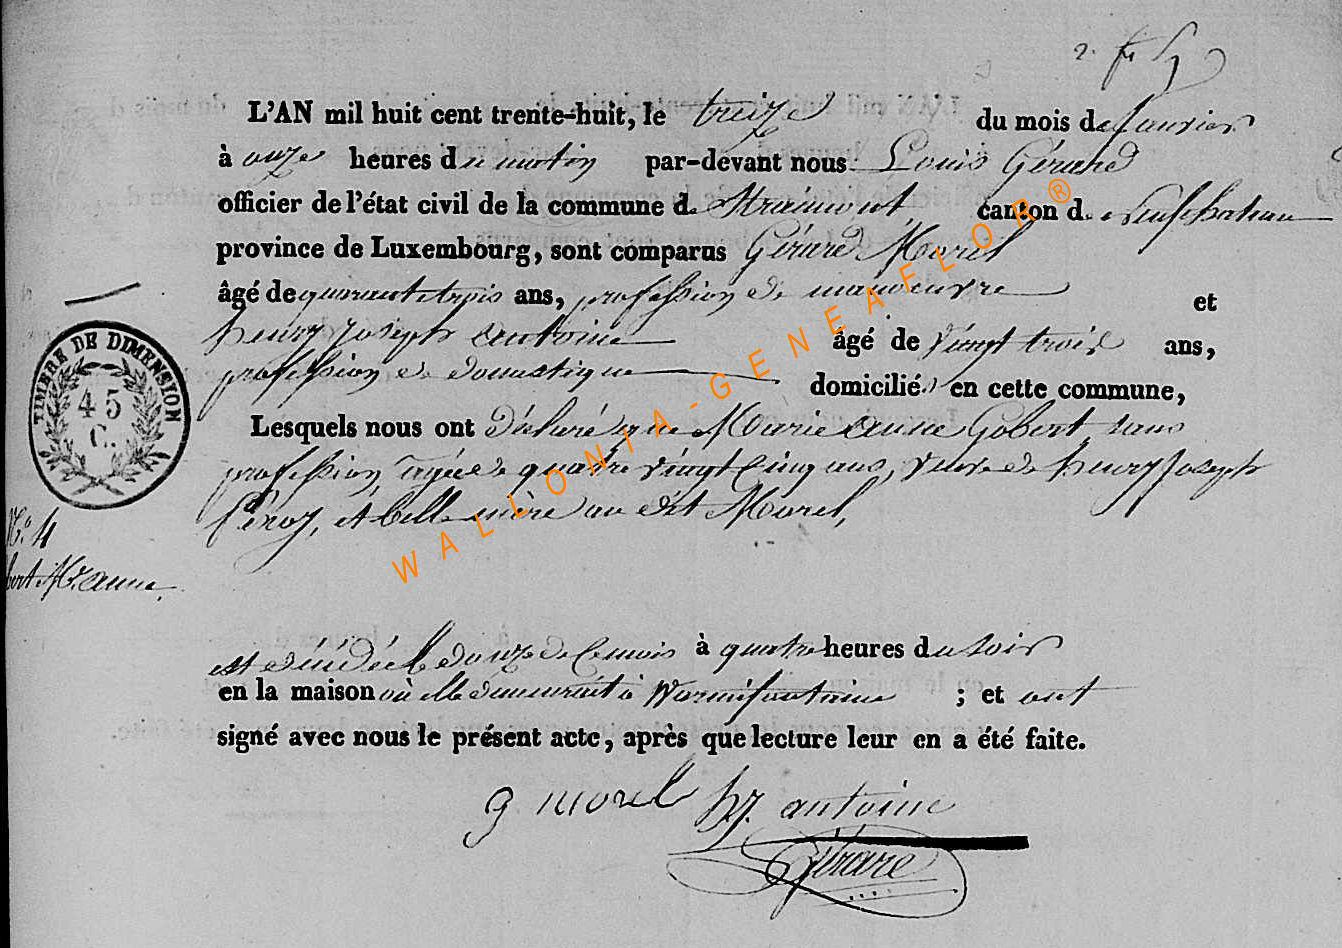 L'AN mil huit cent trente-huit, le treize du mois de Janvier
à onze heures du matin par-devant nous Louis Gérard
officier de l'état civil de la commune de Straimont, canton de Neufchateau
province de Luxembourg, sont comparus Gérard Morel
âgé de quarante trois ans, profession de manoeuvre et
henry Joseph antoine âgé de vingt trois ans,
profession de domestique domiciliés en cette commune,
Lesquels nous ont déclaré que Marie anne Gobert, sans
profession, agée de quatre vingt cinq ans, veuve de henry Joseph
et belle mère au dit Morel,
est décédée le douze de ce mois à quatre heures du soir
en la maison où elle demeurait à Warmifontaine ; et ont
signé avec nous le présent acte, après que lecture leur en a été faite.
g morel hJ. antoine
Gérard
TIMBRE DE DIMENSION
45
C.
N.° 4
bert M. anne.
WALLONIA-GENEAFLOR®